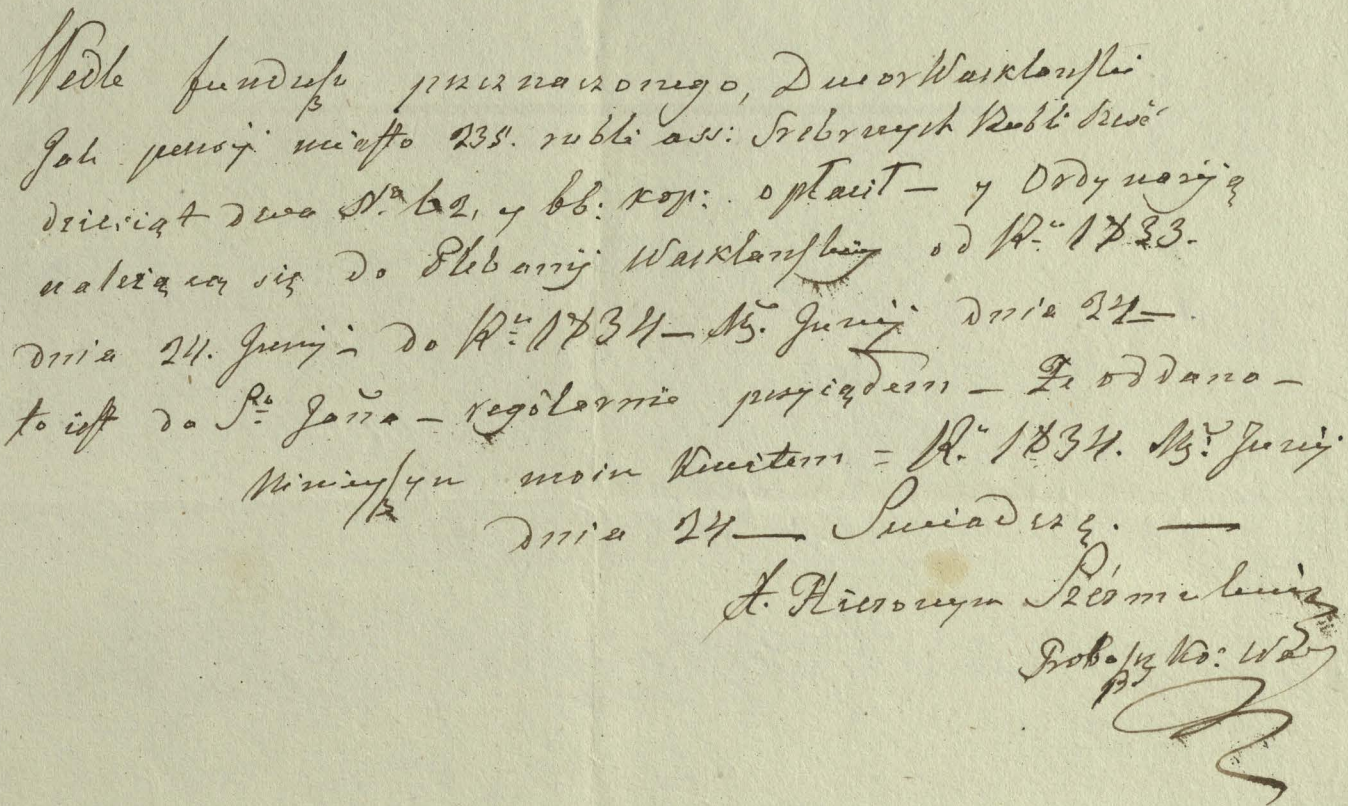 Wedle funduszu przeznaczonego, Dwor Warklanski
Jak pensyi miasto 235. rubli ass: Srebrnych Rubli szesć
dziesiąt dwa N° 62, y 66: kop: opłacił — y Ordynaryją
należącą się do Plebanij Warklanskiey od R.u 1833.
dnia 24. Junij — do R.u 1834 — M. Junij dnia 24 —
to iest do S.o Jana — rególarnie przyiąłem — Ze oddano —
Ninieyszym moim Kwitem = R.u 1834. M. Junij
dnia 24 — Swiadczę. —
X. Hieronym
Probosz Ko: Wa